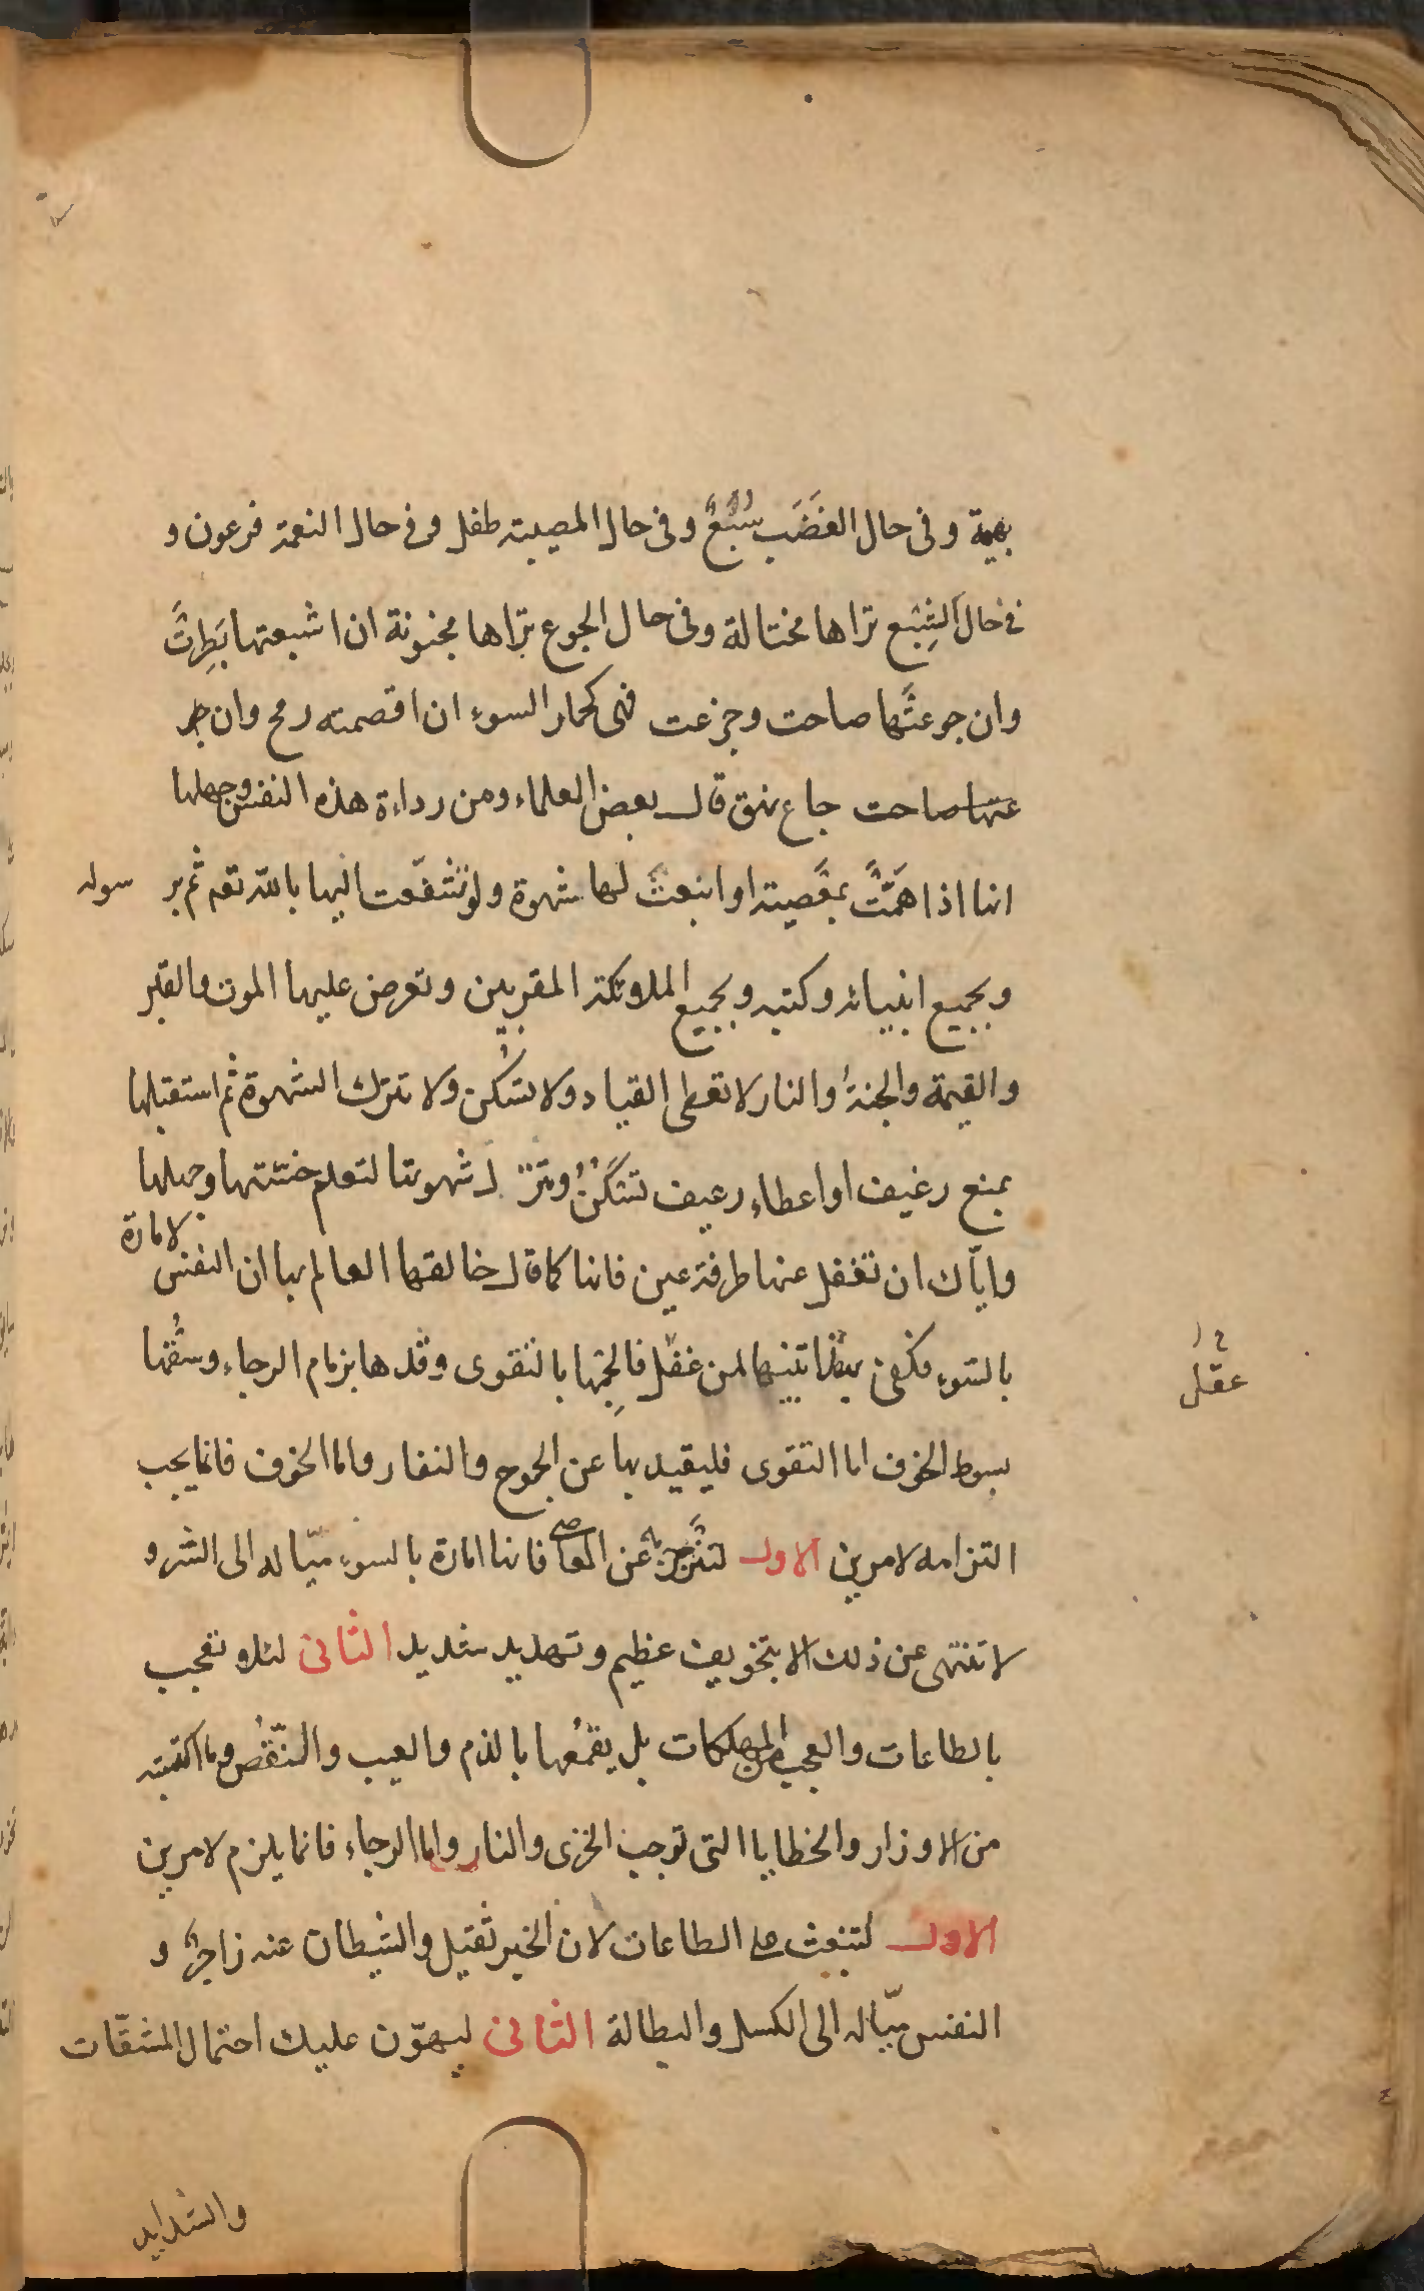 بهيمة وفى حال الغَضَب سَبُعٌ وفى حال المصيبة طفل وفى حال النعمة فرعون و
فى حال الشِبَع تراها مختالة وفى حال الجوع تراها مجنونة ان اشبعتها بَطِرَتْ
وان جوعتَها صاحت وجزعت فهى كحمار السوء ان اقصمته رمح وان جو
عتها صاحت جاع نهق قال بعض العلماء ومن رداءة هذه النفس وجهلها
انها اذا همَّتْ بمعصية او انبعث لها شهوة ولو تشفّعت اليها بالله تعه ثم بر سوله
وبجميع انبيائه وكتبه وبجميع الملائكة المقربين وتعرض عليها الموت والقبر
والقيمة والجنة والنار لا تعطى القياد ولا تسكن ولا تترك الشهوة ثم استقبلها
بمنع رغيف او اعطاء رغيف تسكن وتتر ك شهوتها لتعلم خستها وجهلها
وايّاك ان تغفل عنها طرفة عين فانها كما قال خالقها العالم بها ان النفس لامارة
بالسّوء فكفى بهذا تنبيها لمن غفل فالجِمْها بالتقوى وقدها بزمام الرجاء وسُقْها
عقل
بسوط الخوف اما التقوى فليقيد بها عن الجموح والنفار واما الخوف فانما يجب
التزامه لامرين الاول لتنزجر به عن المعاصى فانها امارة بالسوء ميّالة الى الشر و
لا تنتهى عن ذلك الا بتخويف عظيم وتهديد شديد الثانى لئلا تعجب
بالطاعات والعجب من المهلكات بل يقمعُها بالذم والعيب والنّقص وما اكتسبته
من الاوزار والخطايا التى توجب الخزى والنار واما الرجاء فانما يلزم لامرين
الاول لتنبعث على الطاعات لان الخير ثقيل والشيطان عنه زاجرٌ و
النفس ميّالة الى الكسل والبطالة الثانى ليهوّن عليك احتمال المشقّات
والشدايد